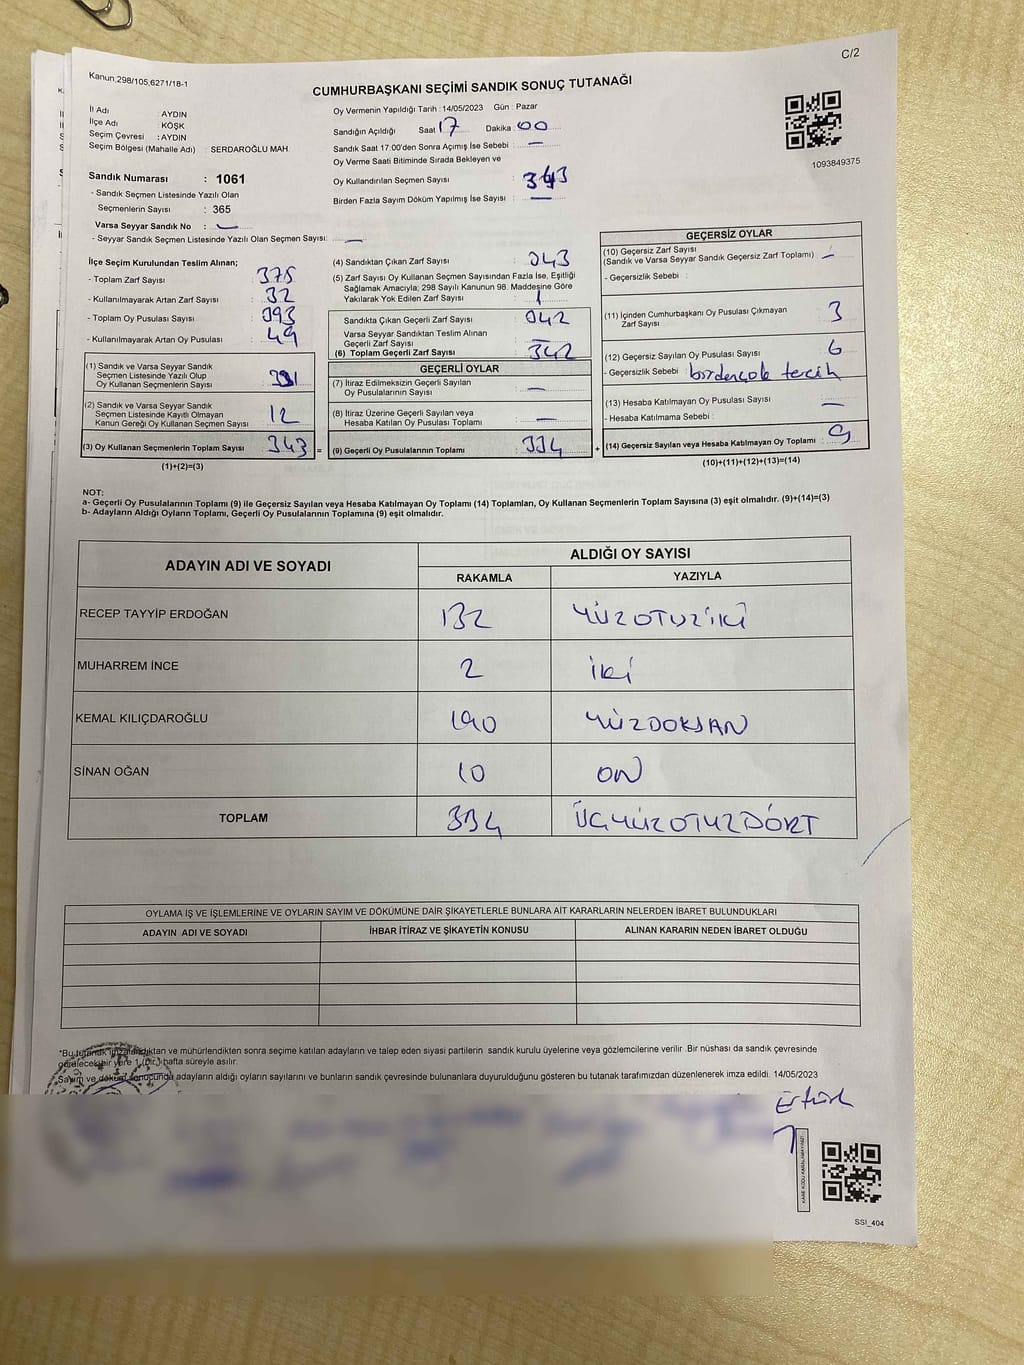 C/2
Kanun,298/105,6271/18-1
CUMHURBAŞKANI SEÇİMİ SANDIK SONUÇ TUTANAĞI
İl Adı : AYDIN
İlçe Adı : KÖŞK
Seçim Çevresi : AYDIN
Seçim Bölgesi (Mahalle Adı) : SERDAROĞLU MAH.
Sandık Numarası : 1061
- Sandık Seçmen Listesinde Yazılı Olan
Seçmenlerin Sayısı : 365
Varsa Seyyar Sandık No : —
- Seyyar Sandık Seçmen Listesinde Yazılı Olan Seçmen Sayısı: —
Oy Vermenin Yapıldığı Tarih : 14/05/2023 Gün : Pazar
Sandığın Açıldığı Saat 17 Dakika : 00
Sandık Saat 17:00'den Sonra Açımış İse Sebebi : —
Oy Verme Saati Bitiminde Sırada Bekleyen ve
Oy Kullandırılan Seçmen Sayısı : 343
Birden Fazla Sayım Döküm Yapılmış İse Sayısı : —
1093849375
İlçe Seçim Kurulundan Teslim Alınan;
- Toplam Zarf Sayısı : 375
- Kullanılmayarak Artan Zarf Sayısı : 32
- Toplam Oy Pusulası Sayısı : 393
- Kullanılmayarak Artan Oy Pusulası : 49
(1) Sandık ve Varsa Seyyar Sandık
Seçmen Listesinde Yazılı Olup
Oy Kullanan Seçmenlerin Sayısı : 331
(2) Sandık ve Varsa Seyyar Sandık
Seçmen Listesinde Kayıtlı Olmayan
Kanun Gereği Oy Kullanan Seçmen Sayısı : 12
(3) Oy Kullanan Seçmenlerin Toplam Sayısı : 343 =
(1)+(2)=(3)
(4) Sandıktan Çıkan Zarf Sayısı : 343
(5) Zarf Sayısı Oy Kullanan Seçmen Sayısından Fazla İse, Eşitliği
Sağlamak Amacıyla; 298 Sayılı Kanunun 98. Maddesine Göre
Yakılarak Yok Edilen Zarf Sayısı : 1
Sandıkta Çıkan Geçerli Zarf Sayısı : 342
Varsa Seyyar Sandıktan Teslim Alınan
Geçerli Zarf Sayısı : —
(6) Toplam Geçerli Zarf Sayısı : 342
GEÇERLİ OYLAR
(7) İtiraz Edilmeksizin Geçerli Sayılan
Oy Pusulalarının Sayısı : —
(8) İtiraz Üzerine Geçerli Sayılan veya
Hesaba Katılan Oy Pusulası Toplamı : —
(9) Geçerli Oy Pusulalarının Toplamı : 334 +
GEÇERSİZ OYLAR
(10) Geçersiz Zarf Sayısı
(Sandık ve Varsa Seyyar Sandık Geçersiz Zarf Toplamı) : —
- Geçersizlik Sebebi :
(11) İçinden Cumhurbaşkanı Oy Pusulası Çıkmayan
Zarf Sayısı : 3
(12) Geçersiz Sayılan Oy Pusulası Sayısı : 6
- Geçersizlik Sebebi : birdençok tercih
(13) Hesaba Katılmayan Oy Pusulası Sayısı : —
- Hesaba Katılmama Sebebi :
(14) Geçersiz Sayılan veya Hesaba Katılmayan Oy Toplamı : 9
(10)+(11)+(12)+(13)=(14)
NOT:
a- Geçerli Oy Pusulalarının Toplamı (9) ile Geçersiz Sayılan veya Hesaba Katılmayan Oy Toplamı (14) Toplamları, Oy Kullanan Seçmenlerin Toplam Sayısına (3) eşit olmalıdır. (9)+(14)=(3)
b- Adayların Aldığı Oyların Toplamı, Geçerli Oy Pusulalarının Toplamına (9) eşit olmalıdır.
ADAYIN ADI VE SOYADI ALDIĞI OY SAYISI
RAKAMLA YAZIYLA
RECEP TAYYİP ERDOĞAN 132 YÜZOTUZİKİ
MUHARREM İNCE 2 İKİ
KEMAL KILIÇDAROĞLU 190 YÜZDOKSAN
SİNAN OĞAN 10 ON
TOPLAM 334 ÜÇYÜZOTUZDÖRT
OYLAMA İŞ VE İŞLEMLERİNE VE OYLARIN SAYIM VE DÖKÜMÜNE DAİR ŞİKAYETLERLE BUNLARA AİT KARARLARIN NELERDEN İBARET BULUNDUKLARI
ADAYIN ADI VE SOYADI İHBAR İTİRAZ VE ŞİKAYETİN KONUSU ALINAN KARARIN NEDEN İBARET OLDUĞU
"Bu tutanak imzalandıktan ve mühürlendikten sonra seçime katılan adayların ve talep eden siyasi partilerin sandık kurulu üyelerine veya gözlemcilerine verilir .Bir nüshası da sandık çevresinde
görelecek bir yere 1 (bir) hafta süreyle asılır.
Sayım ve döküm sonucunda adayların aldığı oyların sayılarını ve bunların sandık çevresinde bulunanlara duyurulduğunu gösteren bu tutanak tarafımızdan düzenlenerek imza edildi. 14/05/2023
Ertürk
SSI_404